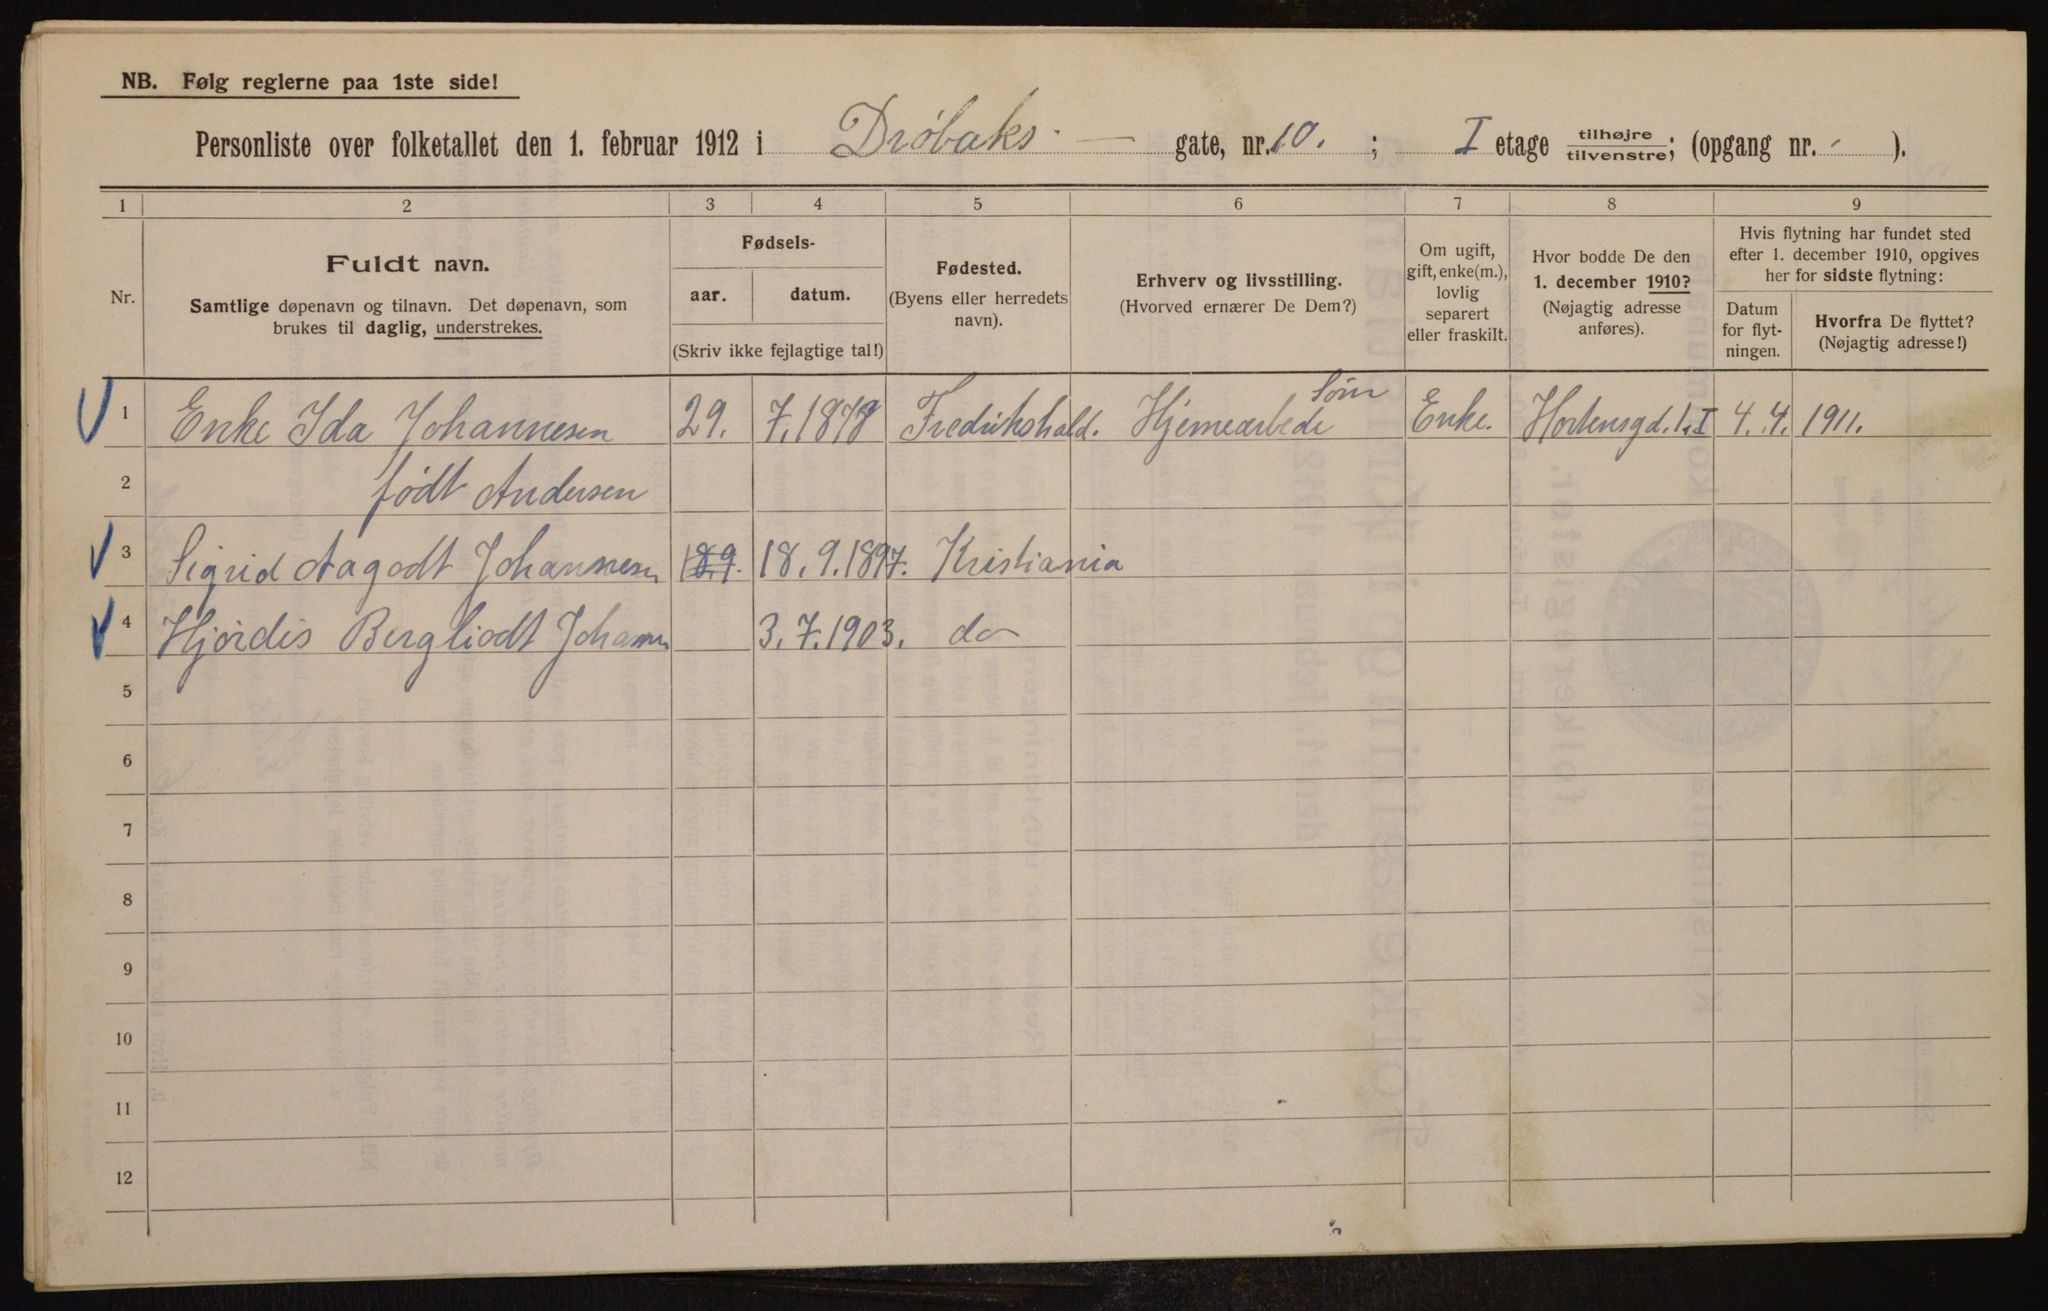 NB. Følg reglerne paa 1ste side!
Personliste over folketallet den 1. februar 1912 i Drøbaks - gate, nr. 10. ; I etage tilhøjre tilvenstre; (opgang nr. - ).
1 2 3 4 5 6 7 8 9
Nr.
Fuldt navn.
Samtlige døpenavn og tilnavn. Det døpenavn, som
brukes til daglig, understrekes.
Fødsels-
aar. datum.
(Skriv ikke fejlagtige tal!)
Fødested.
(Byens eller herredets
navn).
Erhverv og livsstilling.
(Hvorved ernærer De Dem?)
Om ugift,
gift, enke(m.),
lovlig
separert
eller fraskilt.
Hvor bodde De den
1. december 1910?
(Nøjagtig adresse
anføres).
Hvis flytning har fundet sted
efter 1. december 1910, opgives
her for sidste flytning:
Datum
for flyt-
ningen.
Hvorfra De flyttet?
(Nøjagtig adresse!)
1 Enke Ida Johannesen 29. 7. 1878 Fredrikshald. Hjemearbede Søm Enke. Hortensgd. 1. I 4. 4. 1911.
2 født Andersen
3 Sigrid Aagodt Johannesen 18.9. 18. 9. 1897. Kristiania
4 Hjørdis Bergliodt Johann 3. 7. 1903. do
5
6
7
8
9
10
11
12